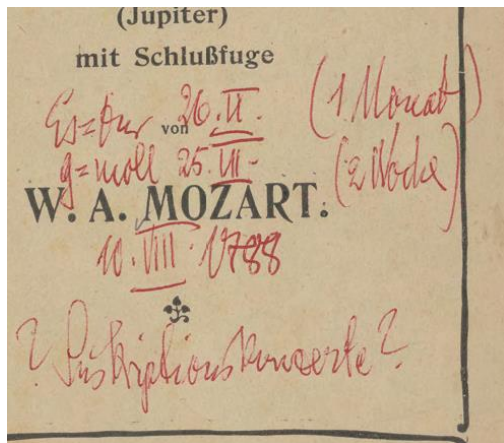 (Jupiter)
mit Schlußfuge
Es=Dur 26. VI. (1 Monat)
von
g=moll 25. VII. (2 Woche)
W. A. MOZART.
10. VIII. 1788
? Suskriptionskonzerte?